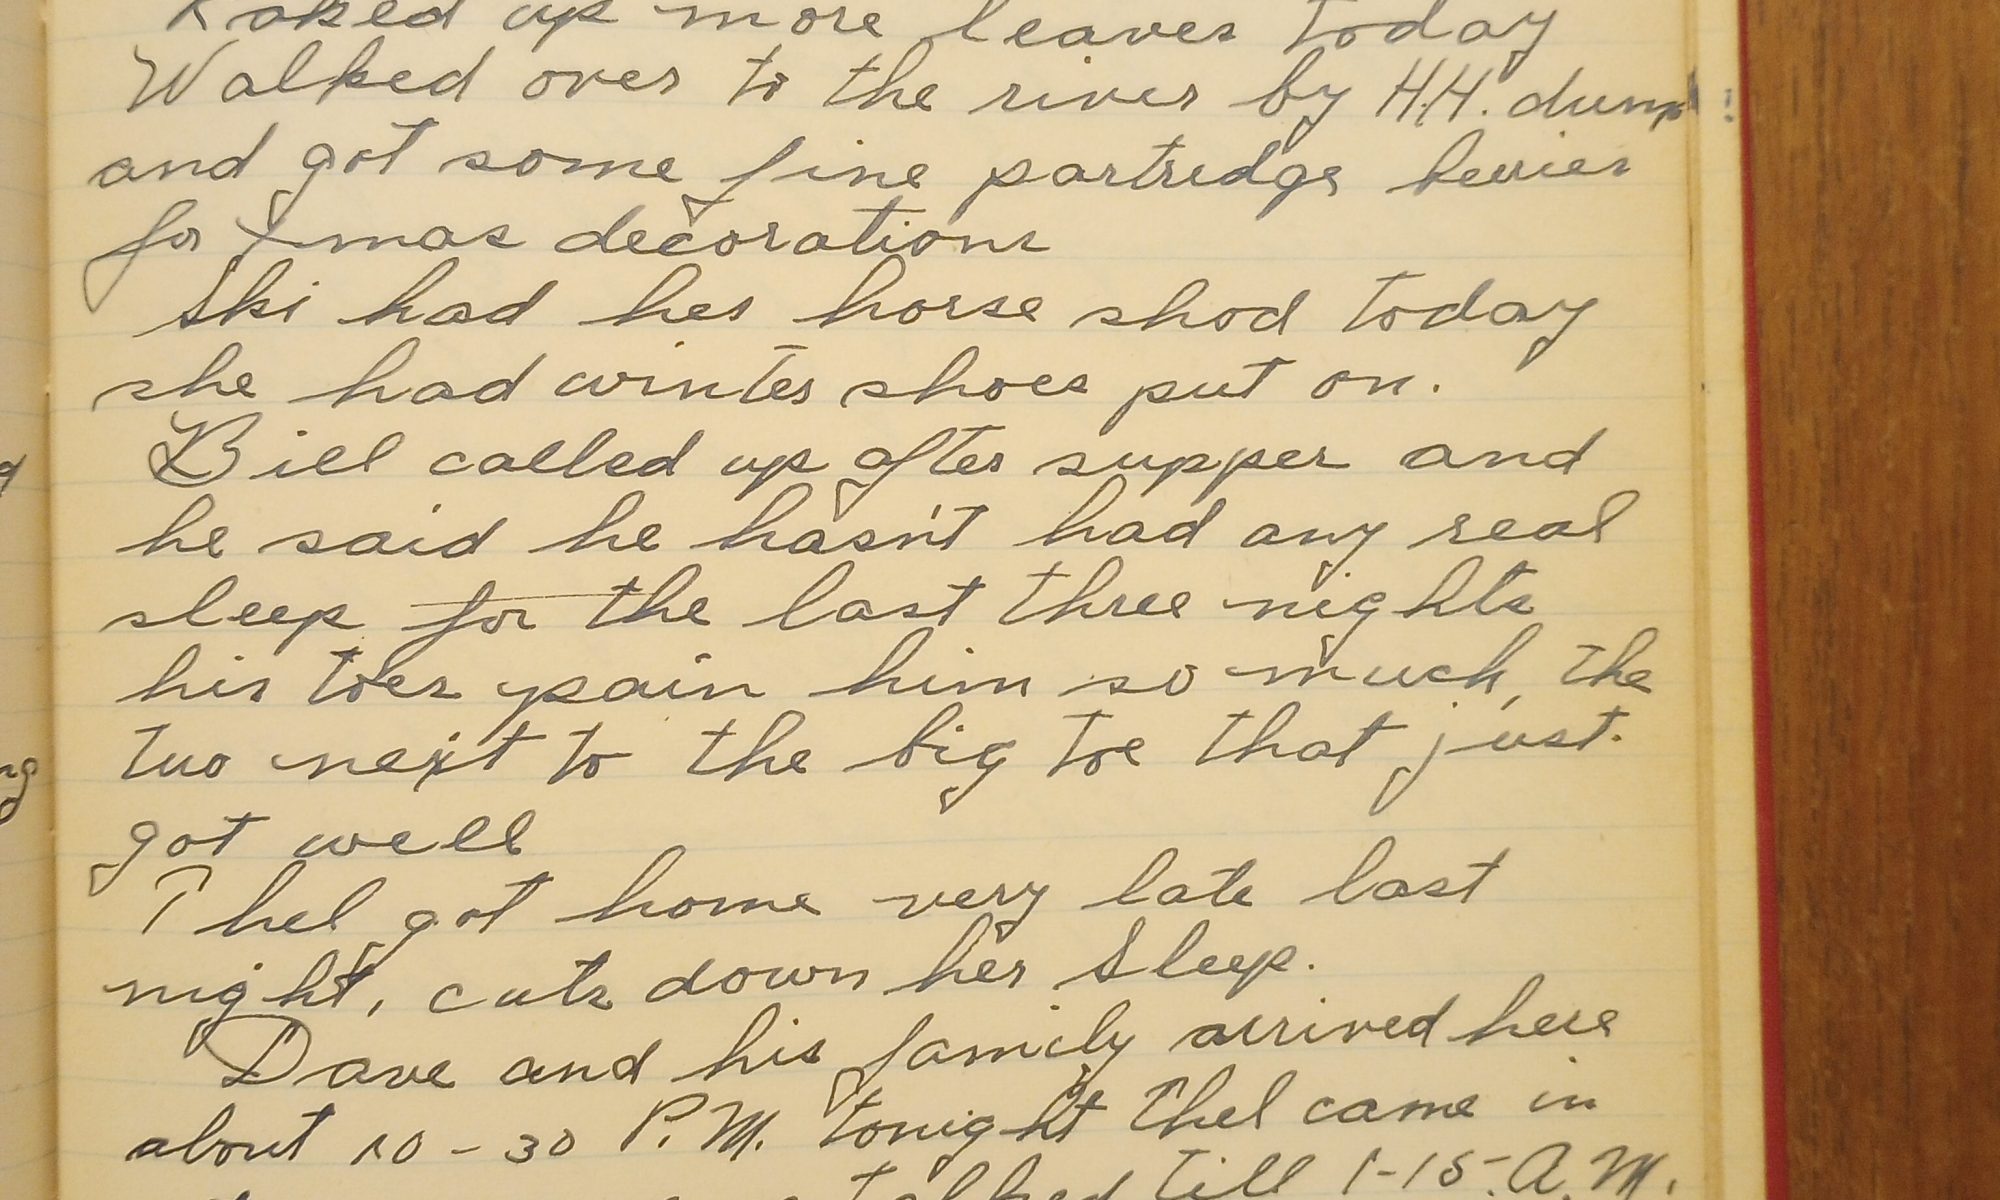 Raked up more leaves today
Walked over to the river by H.H. dump
and got some fine partredge berries
for Xmas decorations
Ski had her horse shod today
she had winter shoes put on.
Bill called up after supper and
he said he hasn't had any real
sleep for the last three nights
his toes pain him so much, the
two next to the big toe that just
got well
Thel got home very late last
night, cuts down her sleep.
Dave and his family arrived here
about 10-30 P.M. tonight Thel came in
talked till 1-15-A.M.